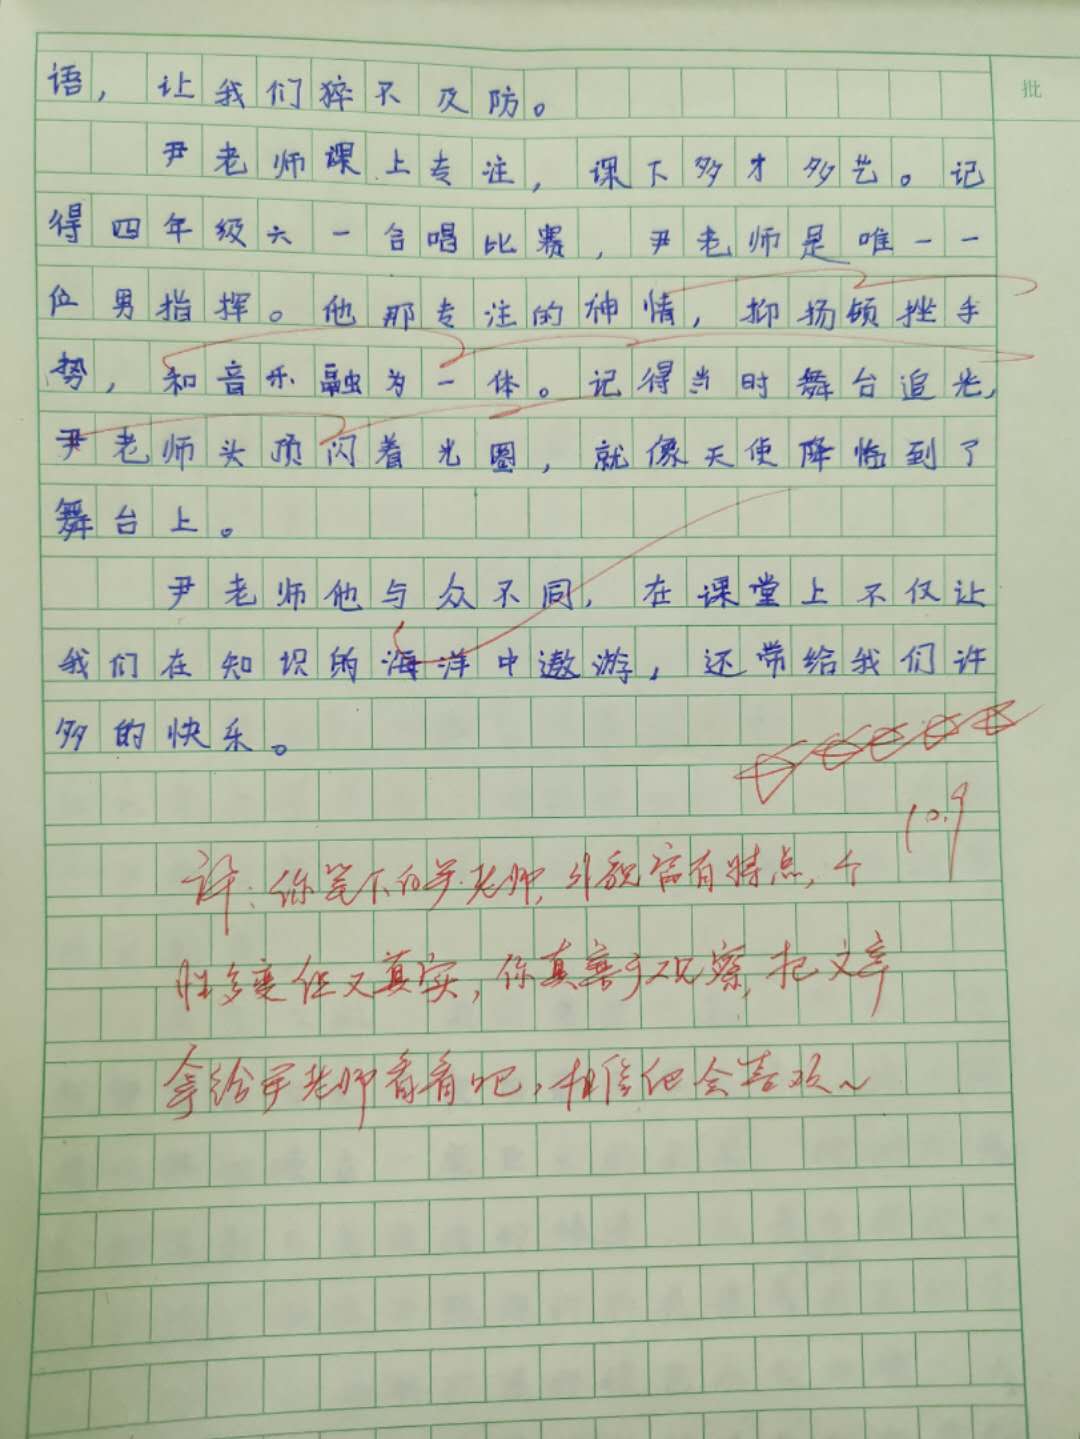 批
语，让我们猝不及防。
尹老师课上专注，课下多才多艺。记
得四年级六一合唱比赛，尹老师是唯一一
位男指挥。他那专注的神情，抑扬顿挫手
势，和音乐融为一体。记得当时舞台追光，
尹老师头顶闪着光圈，就像天使降临到了
舞台上。
尹老师他与众不同，在课堂上不仅让
我们在知识的海洋中遨游，还带给我们许
多的快乐。
10.9
评：你笔下的尹老师，外貌富有特点，个
性多变但又真实，你真善于观察，把文章
拿给尹老师看看吧，相信他会喜欢~